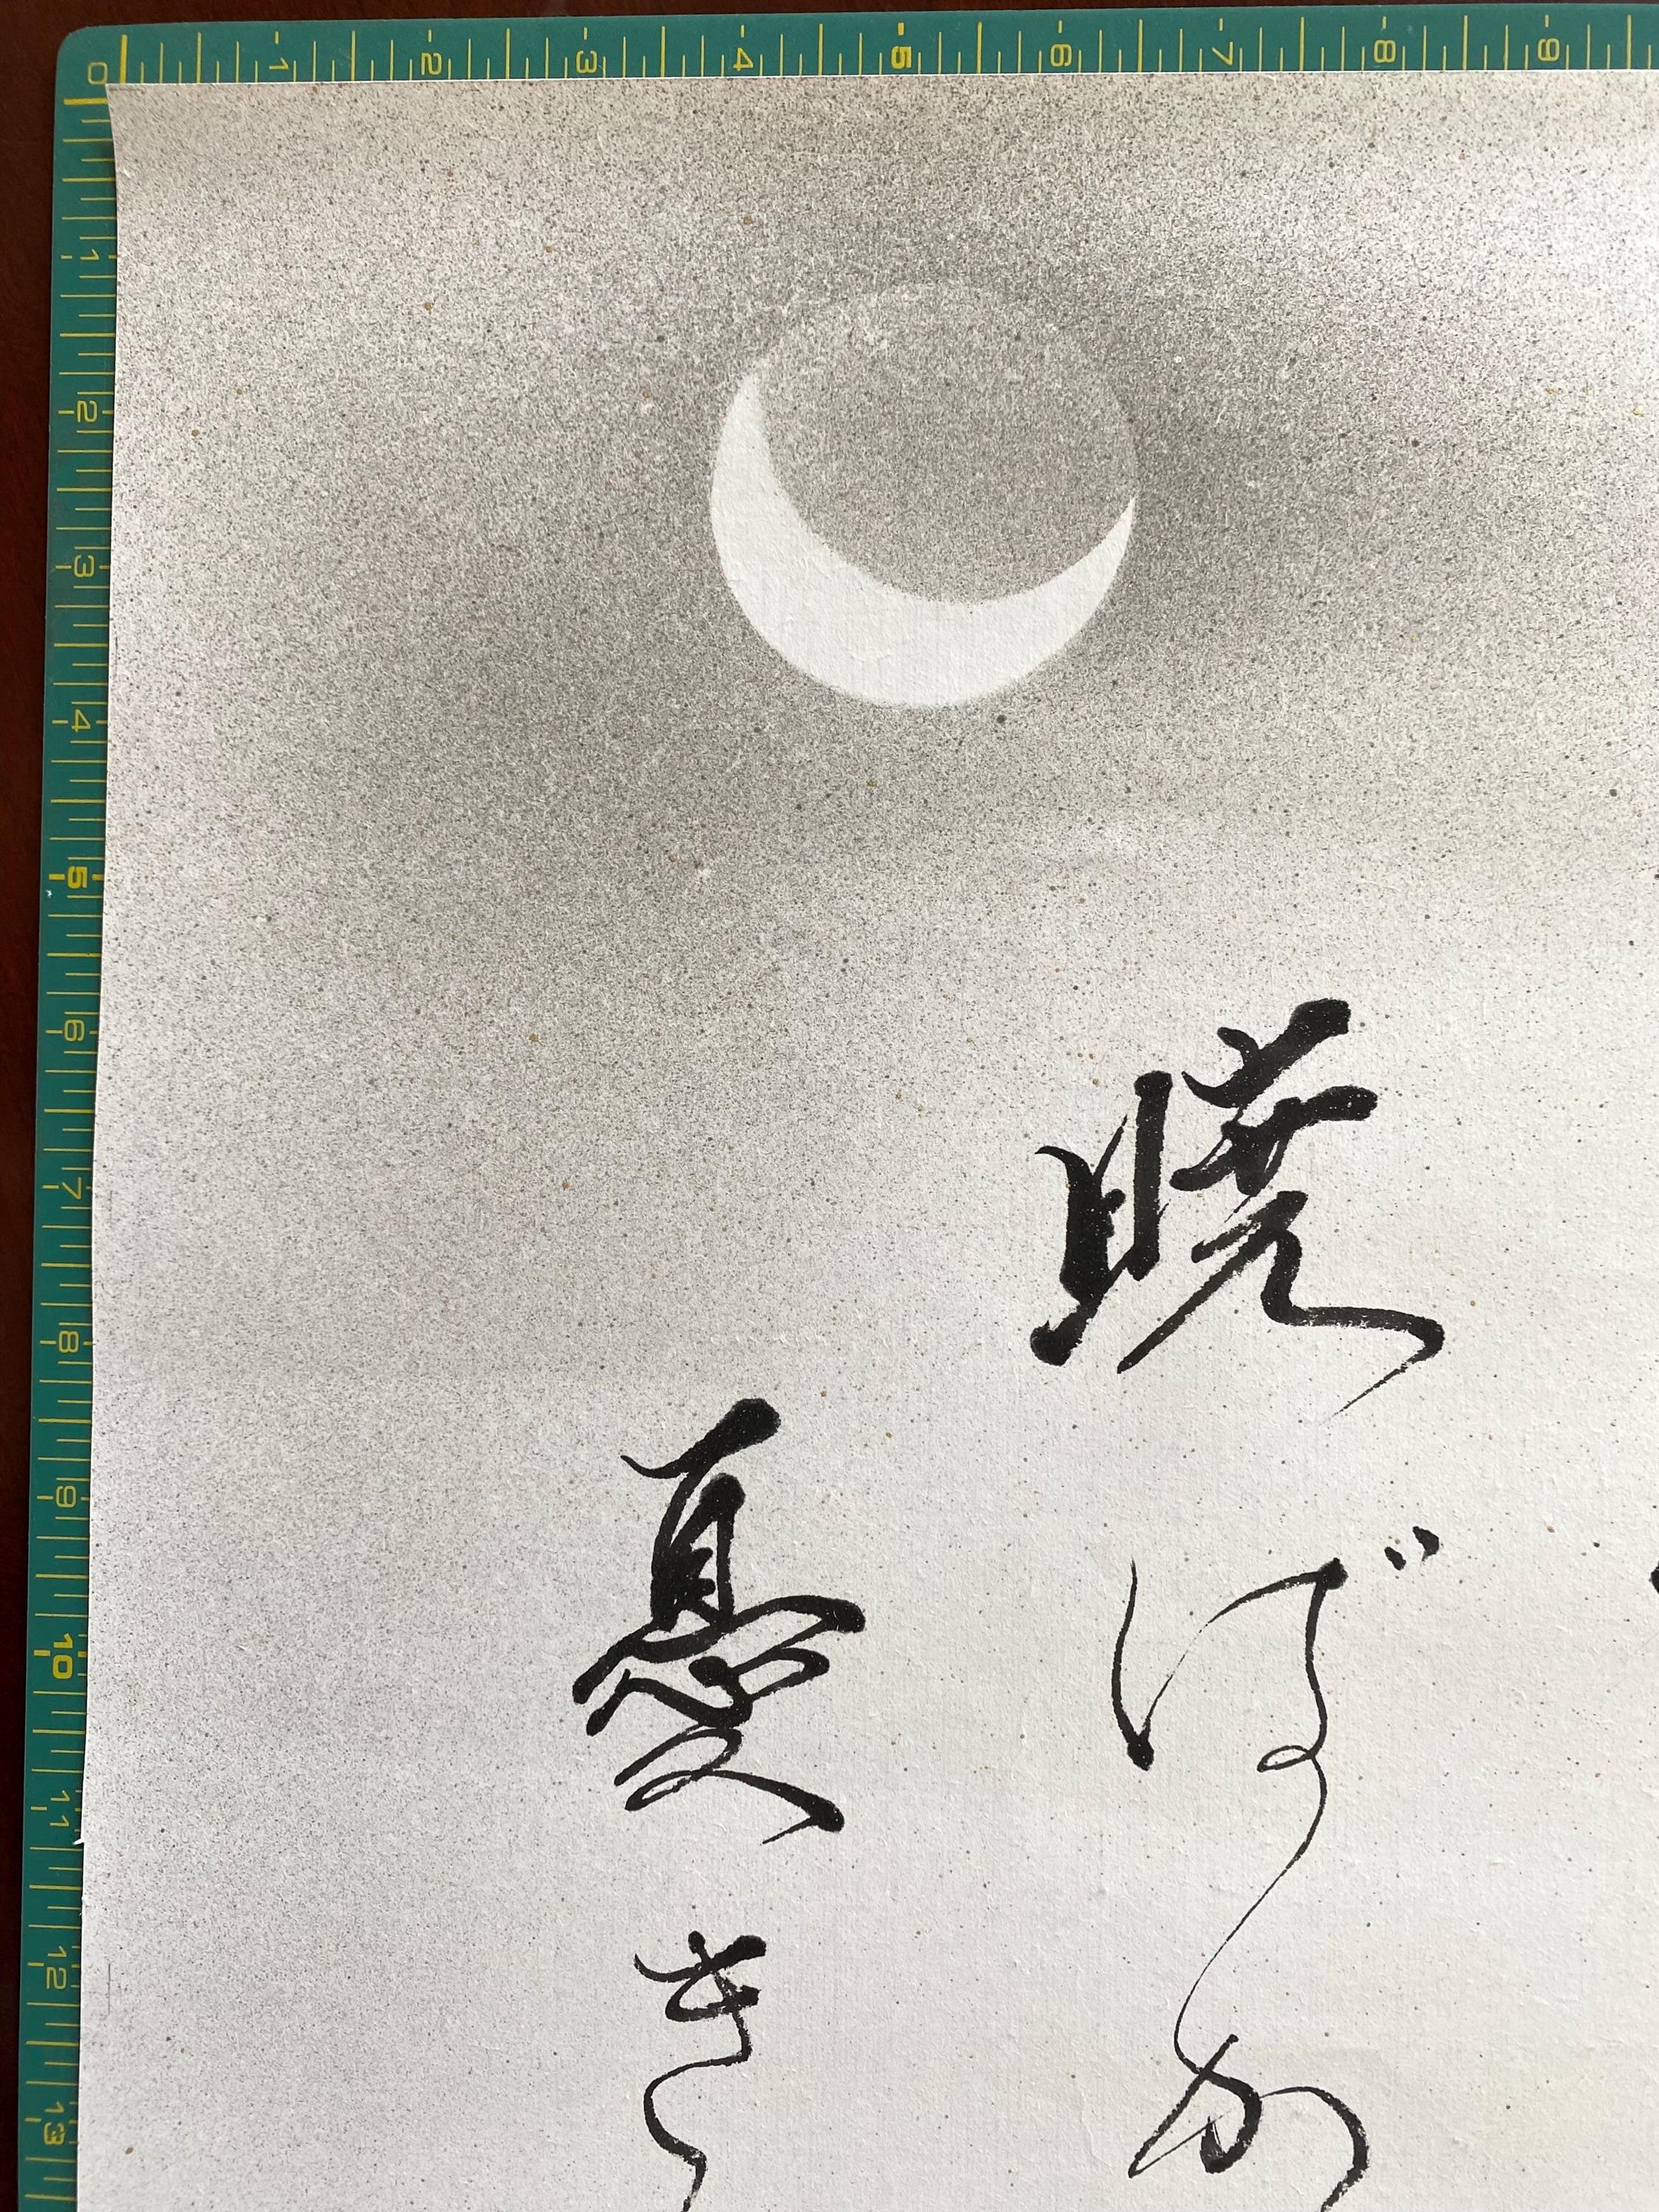 暁ばか
憂き
0 1 2 3 4 5 6 7 8 9
1 2 3 4 5 6 7 8 9 10 11 12 13